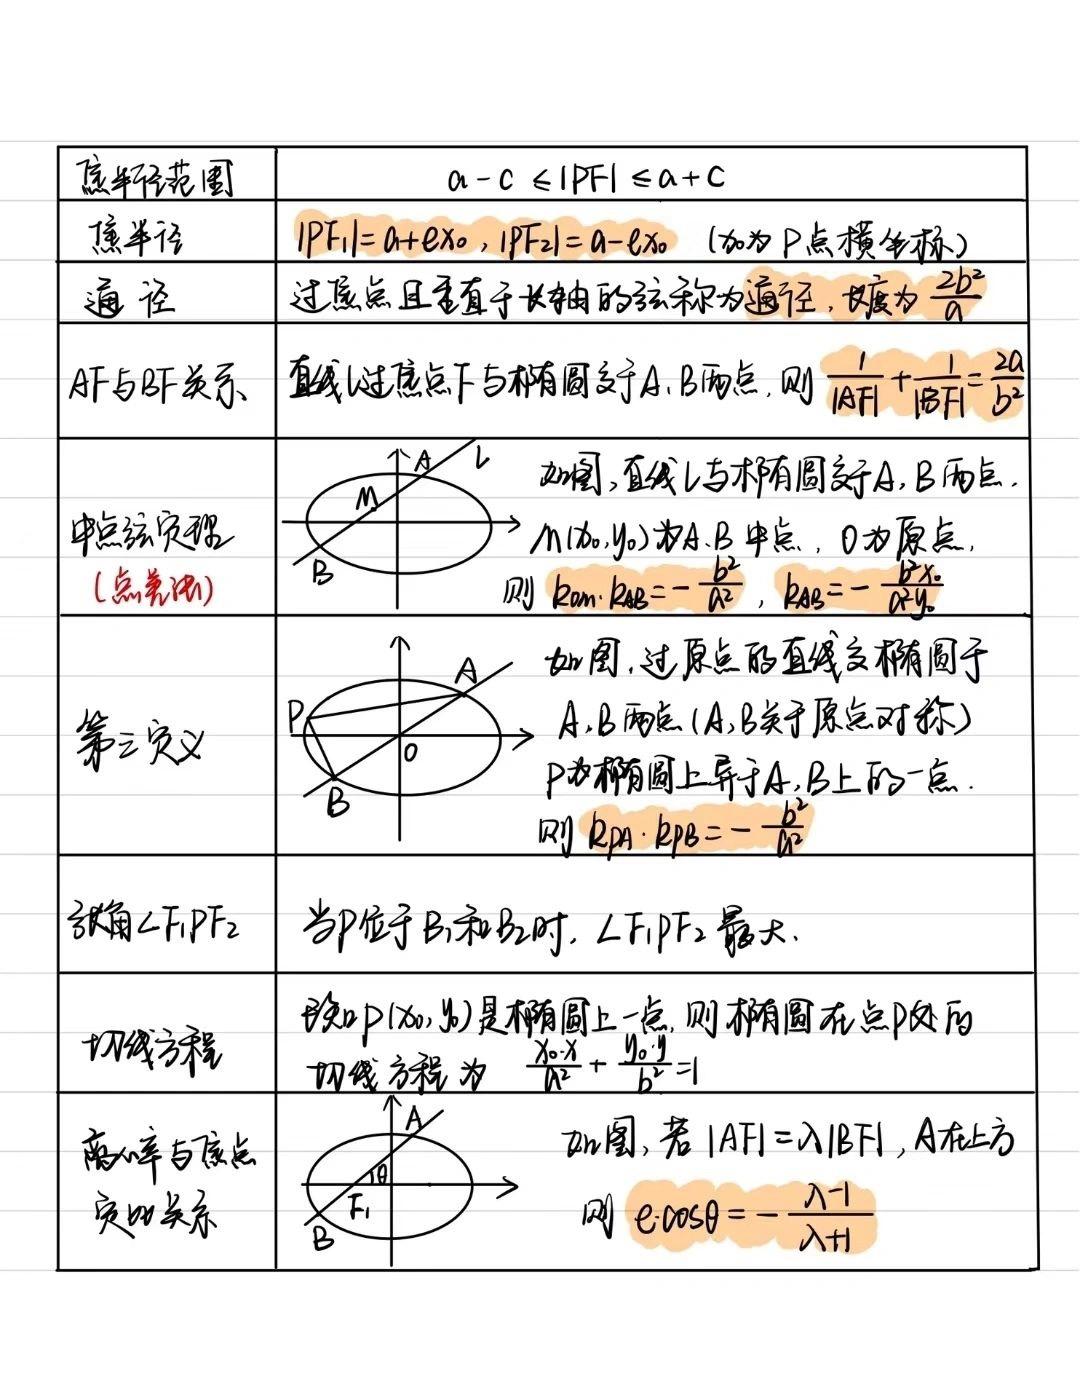 焦半径范围
a-c≤|PF|≤a+c
焦半径
|PF₁|=a+ex₀，|PF₂|=a-ex₀ (x₀为P点横坐标)
通径
过焦点且垂直于长轴的弦称为通径，长度为 2b²/a
AF与BF关系
直线l过焦点F与椭圆交于A、B两点，则 1/|AF| + 1/|BF| = 2a/b²
中点弦定理
(点差法)
A
L
M
B
如图，直线l与椭圆交于A，B两点．
M(x₀,y₀)为A、B中点，O为原点，
则 k_OM·k_AB=-b²/a²，k_AB=-b²x₀/a²y₀
第三定义
A
P
O
B
如图，过原点的直线交椭圆于
A，B两点(A，B关于原点对称)
P为椭圆上异于A，B上的一点．
则 k_PA·k_PB=-b²/a²
张角∠F₁PF₂
当P位于B₁和B₂时，∠F₁PF₂最大．
切线方程
已知P(x₀,y₀)是椭圆上一点，则椭圆在点P处的
切线方程为 x₀·x/a² + y₀·y/b² =1
离心率与焦点
定比关系
A
θ
F₁
B
如图，若|AF|=λ|BF|，A在上方
则 e·cosθ=-λ-1/λ+1